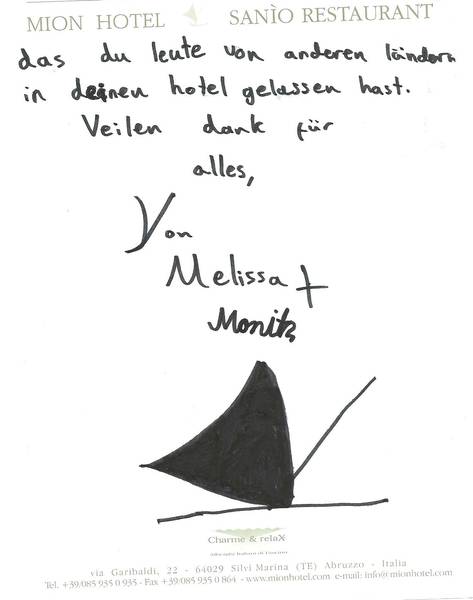 MION HOTEL SANÌO RESTAURANT
das du leute von anderen ländern
in deinen hotel gelassen hast.
Veilen dank für
alles,
Von
Melissa +
Moritz
Charme & relaX
via Garibaldi, 22 - 64029 Silvi Marina (TE) Abruzzo - Italia
Tel. +39/085 935 0 935 - Fax +39/085 935 0 864 - www.mionhotel.com e-mail: info@mionhotel.com